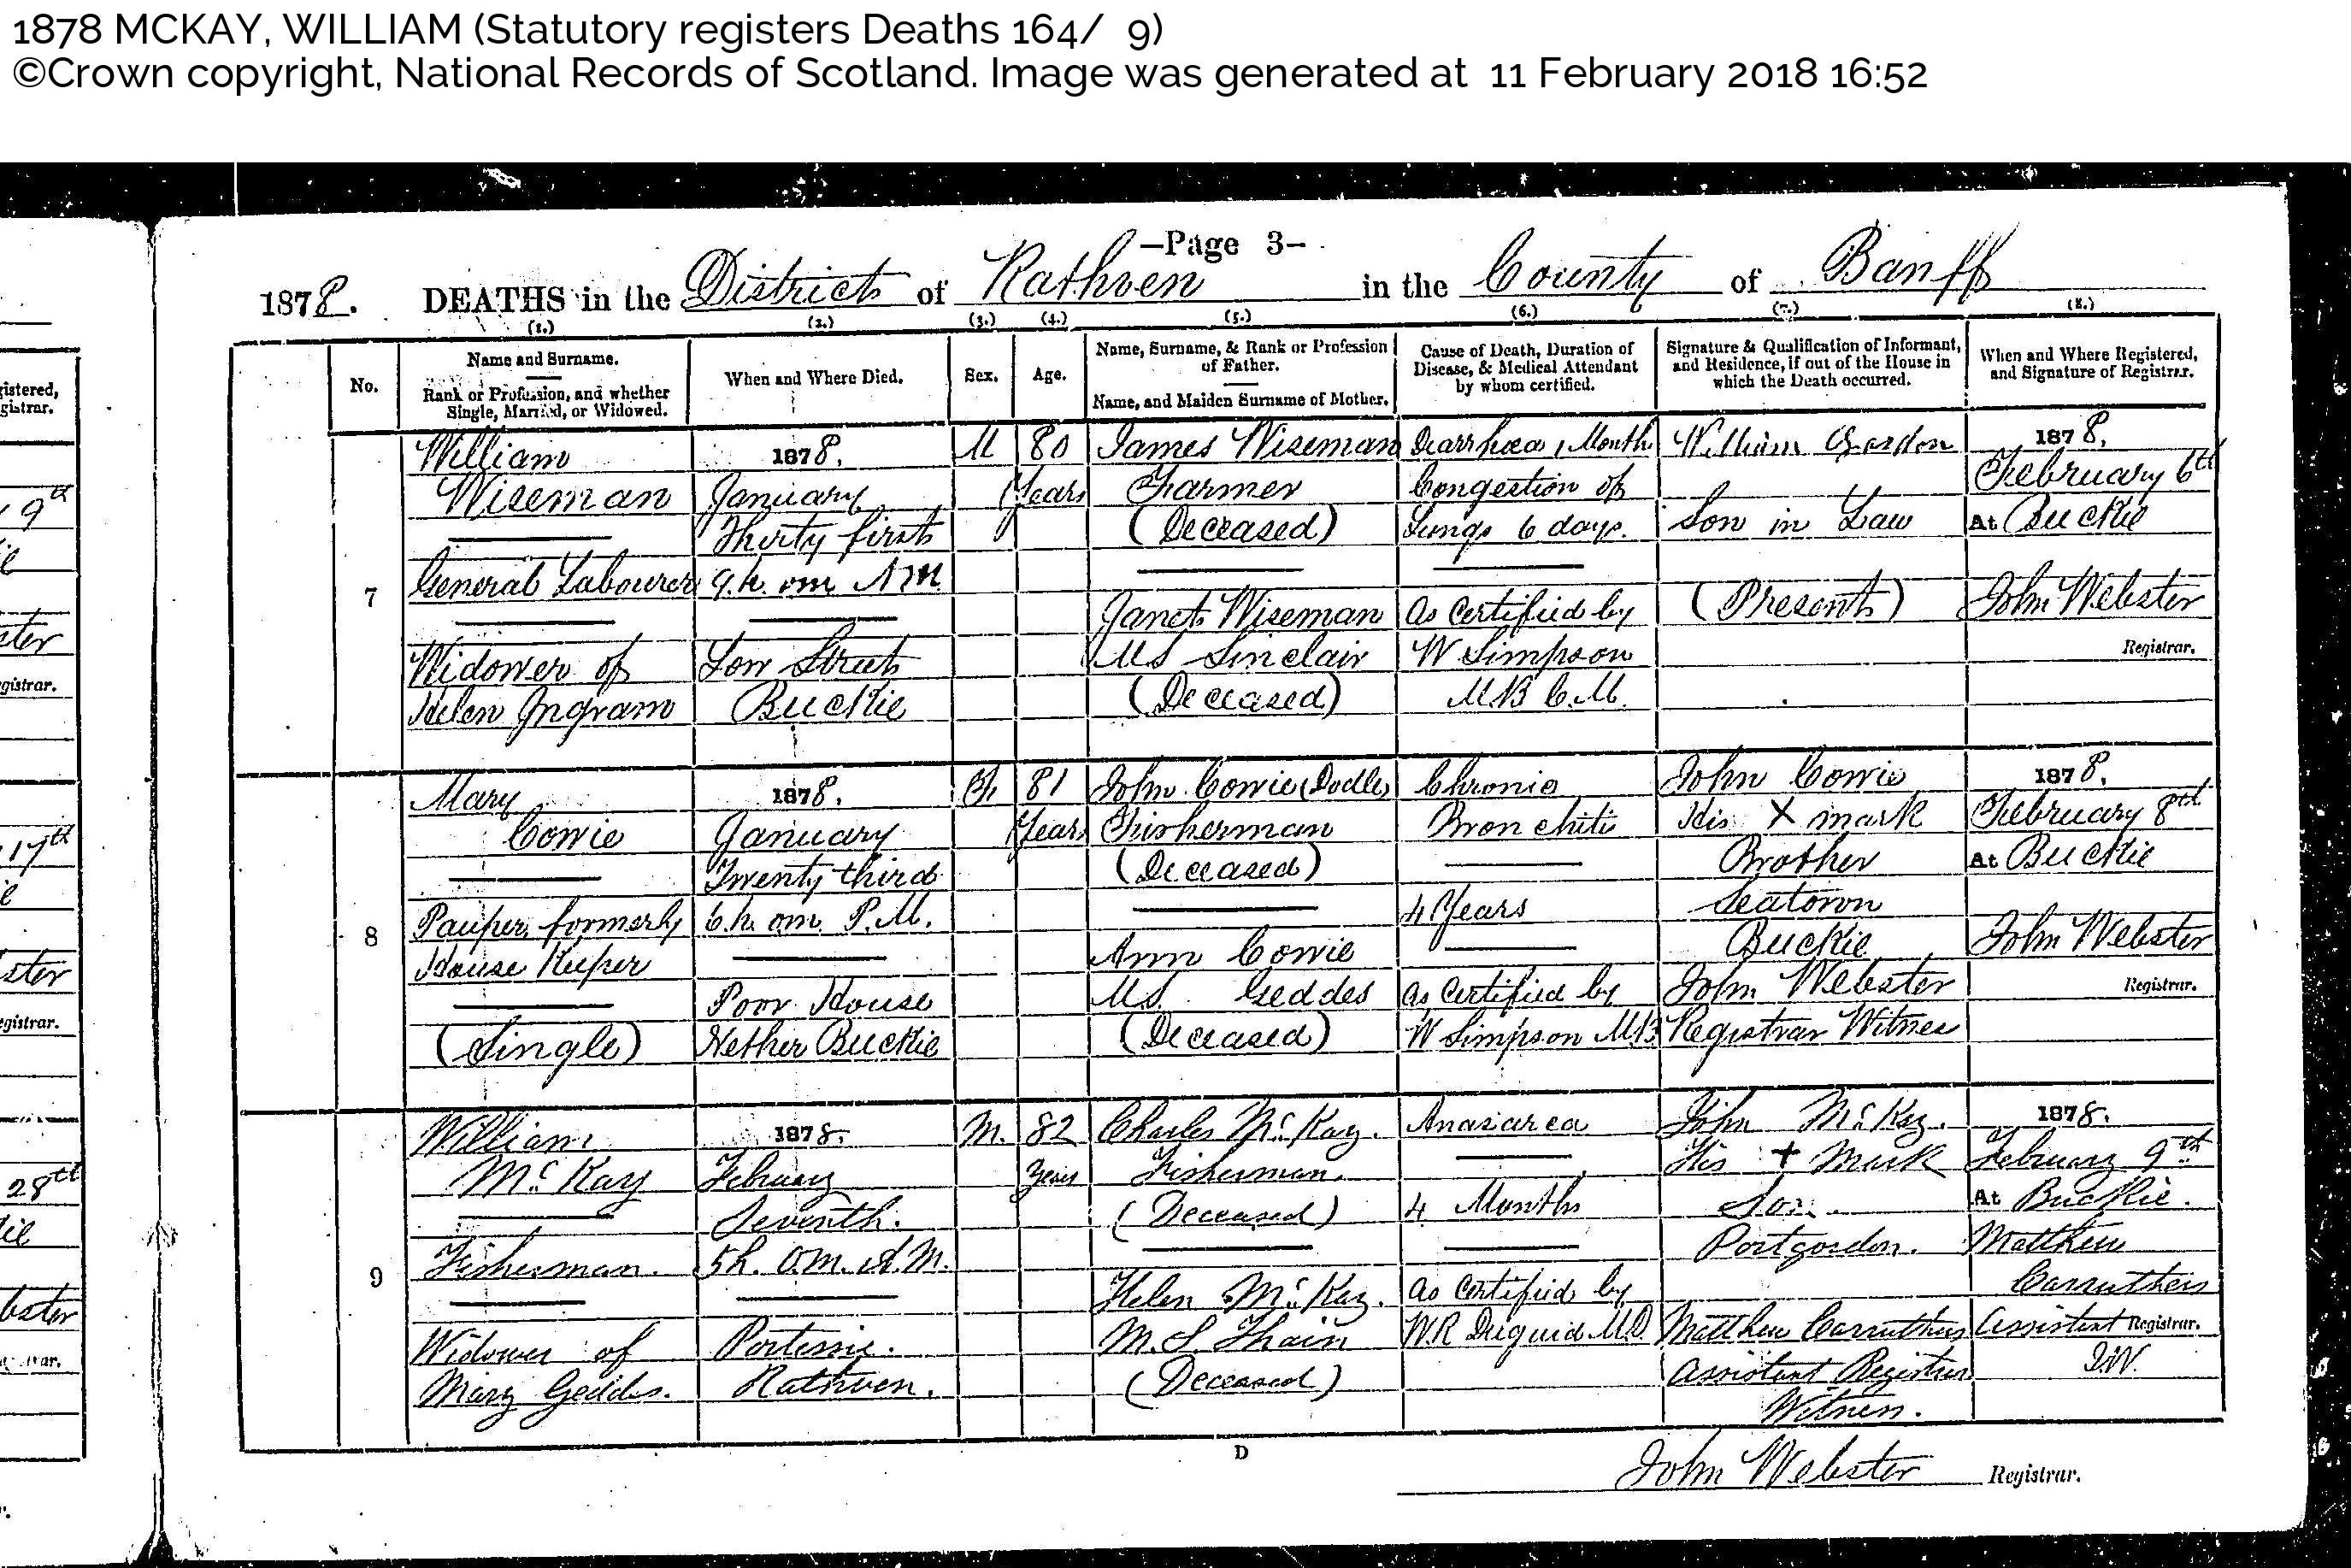 1878 MCKAY, WILLIAM (Statutory registers Deaths 164/ 9)
©Crown copyright, National Records of Scotland. Image was generated at 11 February 2018 16:52
—Page 3—
1878. DEATHS in the District of Rathven in the County of Banff
(1.) (2.) (3.) (4.) (5.) (6.) (7.) (8.)
No.
Name and Surname.
Rank or Profession, and whether
Single, Married, or Widowed.
When and Where Died.
Sex.
Age.
Name, Surname, & Rank or Profession
of Father.
Name, and Maiden Surname of Mother.
Cause of Death, Duration of
Disease, & Medical Attendant
by whom certified.
Signature & Qualification of Informant,
and Residence, if out of the House in
which the Death occurred.
When and Where Registered,
and Signature of Registrar.
7
William
Wiseman
General Labourer
Widower of
Helen Ingram
1878.
January
Thirty first
9.h. om A M
Low Street
Buckie
M
80
Years
James Wiseman
Farmer
(Deceased)
Janet Wiseman
MS Sinclair
(Deceased)
Diarrhœa 1 Month
Congestion of
Lungs 6 days.
As Certified by
W Simpson
M B C.M.
William Gordon
Son in Law
(Present)
1878.
February 6th
At Buckie
John Webster
Registrar.
8
Mary
Cowie
Pauper formerly
House Keeper
(Single)
1878.
January
Twenty third
6.h. om. P.M.
Poor House
Nether Buckie
F.
81
Years
John Cowie (Dodle)
Fisherman
(Deceased)
Ann Cowie
M.S. Geddes
(Deceased)
Chronic
Bronchitis
4 Years
As Certified by
W Simpson M.B
John Cowie
His X mark
Brother
Seatown
Buckie
John Webster
Registrar Witness
1878.
February 8th
At Buckie
John Webster
Registrar.
9
William
McKay
Fisherman.
Widower of
Mary Geddes.
1878.
February
Seventh.
5h. 0m. A.M.
Portessie.
Rathven.
M.
82
Years
Charles McKay.
Fisherman.
(Deceased)
Helen McKay.
M.S. Thain
(Deceased)
Anasarca
4 Months
As Certified by
W.R Duguid M.D.
John McKay.
His + Mark
Son.
Portgordon.
Matthew Carruthers
Assistant Registrar
Witness.
1878.
February 9th
At Buckie.
Matthew
Carruthers
Assistant Registrar.
J.W.
D
John Webster Registrar.